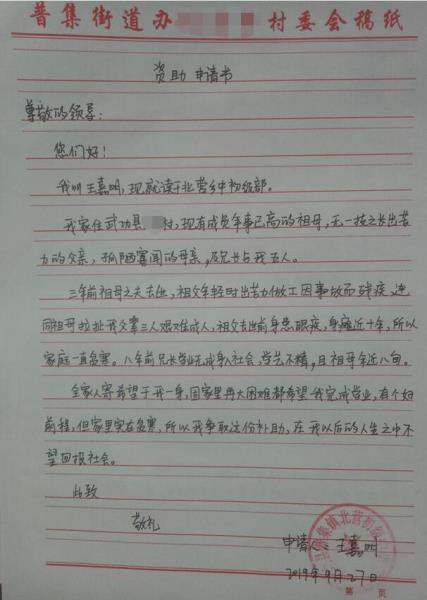 普集街道办 村委会稿纸
资助申请书
尊敬的领导:
您们好!
我叫王嘉明,现就读于北营乡中初级部。
我家住武功县 村,现有成员年事已高的祖母,无一技之长出苦
力的父亲,孤陋寡闻的母亲,及兄长与我五人。
三年前祖母之夫去世,祖父年轻时出苦力做工因事故而残疾,
同祖母拉扯我父辈三人艰难成人,祖父去世前身患眼疾,身瘫近十年,所以
家庭一直贫寒。八年前兄长学业无成身入社会,学艺不精,且祖母年近八旬。
全家人寄希望于我一身,因家里再大困难都希望我完成学业,有个好
前程,但家里实在贫寒,所以我争取这份补助,在我以后的人生之中不
望回报社会。
此致
敬礼
申请人:王嘉明
2019年9月27日
第 页